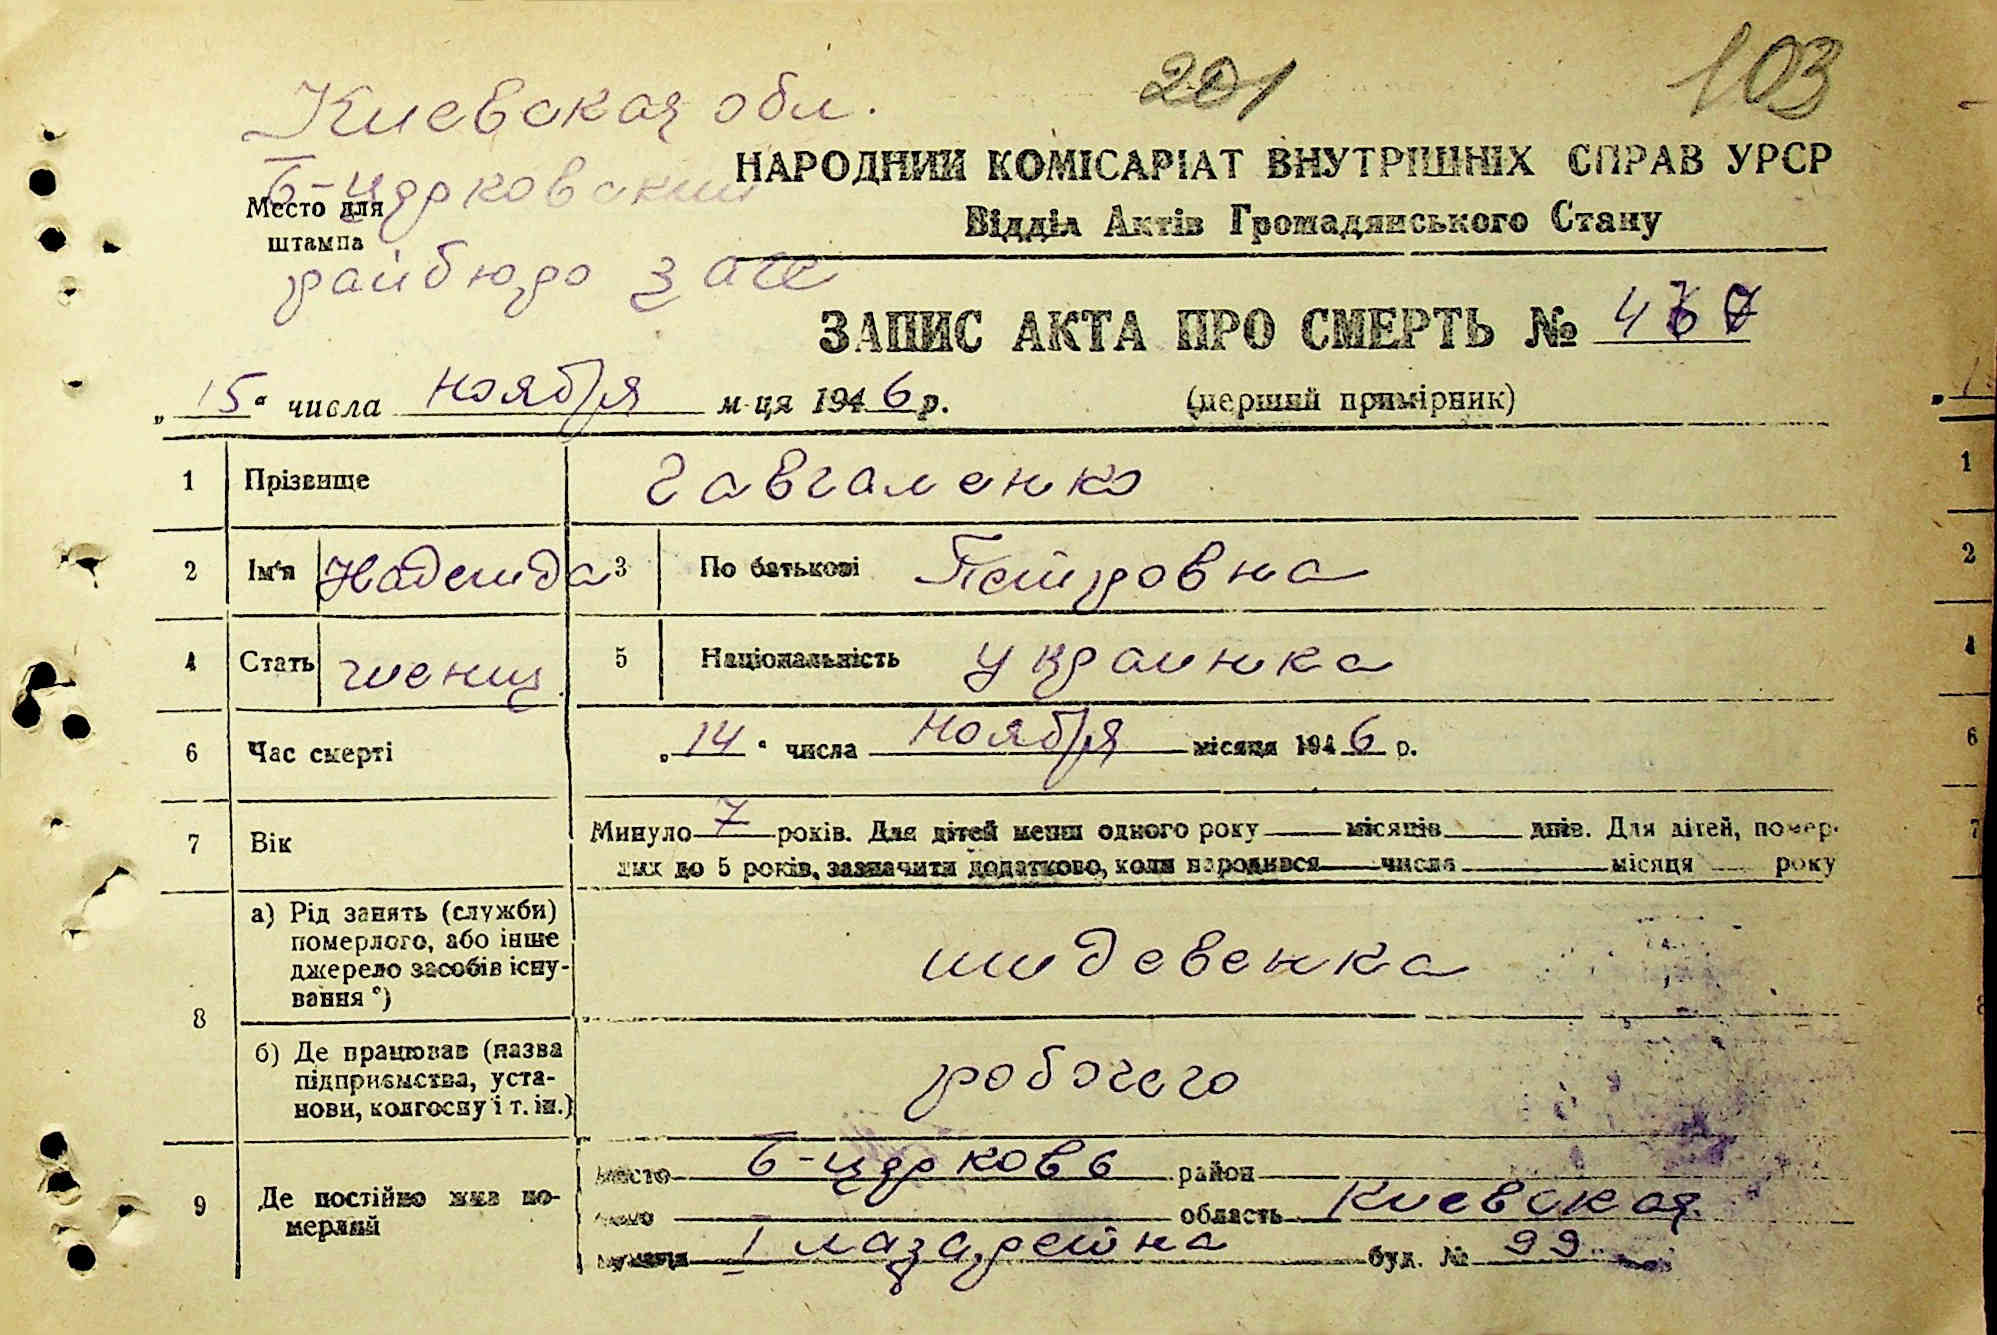 201 103
Киевская обл.
НАРОДНИЙ КОМІСАРІАТ ВНУТРІШНІХ СПРАВ УРСР
Б-Церковский
Место для
штампа
Відділ Актів Громадянського Стану
райбюро загс
ЗАПИС АКТА ПРО СМЕРТЬ №
„ 15 “ числа ноября м-ця 1946 р. (перший примірник)
1 Прізвище Гавгаленко
2 Ім'я Надежда 3 По батькові Петровна
4 Стать женщ. 5 Національність украинка
6 Час смерті „ 14 “ числа ноября місяця 1946 р.
7 Вік Минуло 7 років. Для дітей менш одного року місяців днів. Для дітей, помер-
лих до 5 років, зазначити додатково, коли народився числа місяця року
8 а) Рід занять (служби)
померлого, або інше
джерело засобів існу-
вання *)
иждевенка
б) Де працював (назва
підприємства, уста-
нови, колгоспу і т. ін.)
робочего
9 Де постійно жив по-
мерлий
место Б-церковь район
село область Киевская
вулиця I лазарейна буд. № 99